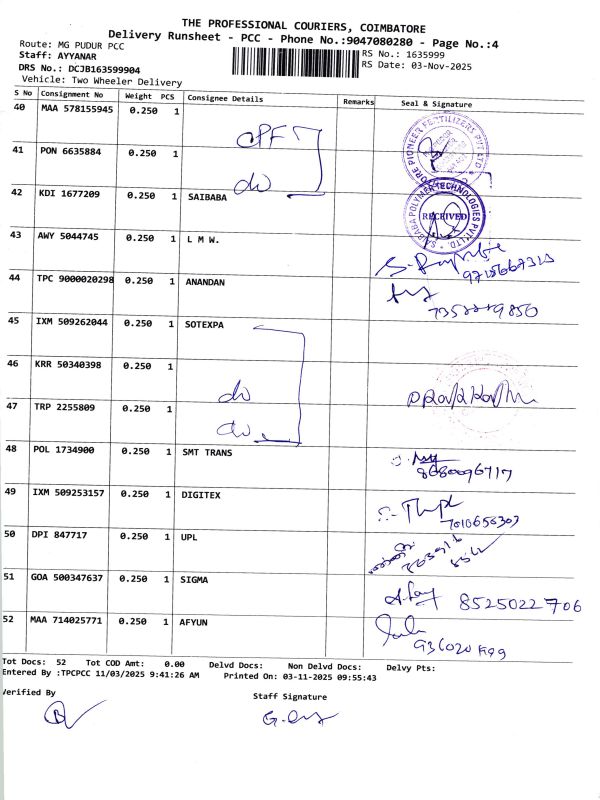 THE PROFESSIONAL COURIERS, COIMBATORE
Delivery Runsheet - PCC - Phone No.:9047080280 - Page No.:4
Route: MG PUDUR PCC
RS No.: 1635999
Staff: AYYANAR
RS Date: 03-Nov-2025
DRS No.: DCJB163599904
Vehicle: Two Wheeler Delivery
S No Consignment No Weight PCS Consignee Details Remarks Seal & Signature
40 MAA 578155945 0.250 1
41 PON 6635884 0.250 1 do
42 KDI 1677209 0.250 1 SAIBABA RECEIVED
43 AWY 5044745 0.250 1 L M W.
44 TPC 9000020298 0.250 1 ANANDAN
45 IXM 509262044 0.250 1 SOTEXPA
46 KRR 50340398 0.250 1 do
47 TRP 2255809 0.250 1 do
48 POL 1734900 0.250 1 SMT TRANS
8680096717
49 IXM 509253157 0.250 1 DIGITEX
7010656303
50 DPI 847717 0.250 1 UPL
51 GOA 500347637 0.250 1 SIGMA
8525022706
52 MAA 714025771 0.250 1 AFYUN
Tot Docs: 52 Tot COD Amt: 0.00 Delvd Docs: Non Delvd Docs: Delvy Pts:
Entered By :TPCPCC 11/03/2025 9:41:26 AM Printed On: 03-11-2025 09:55:43
Verified By
Staff Signature